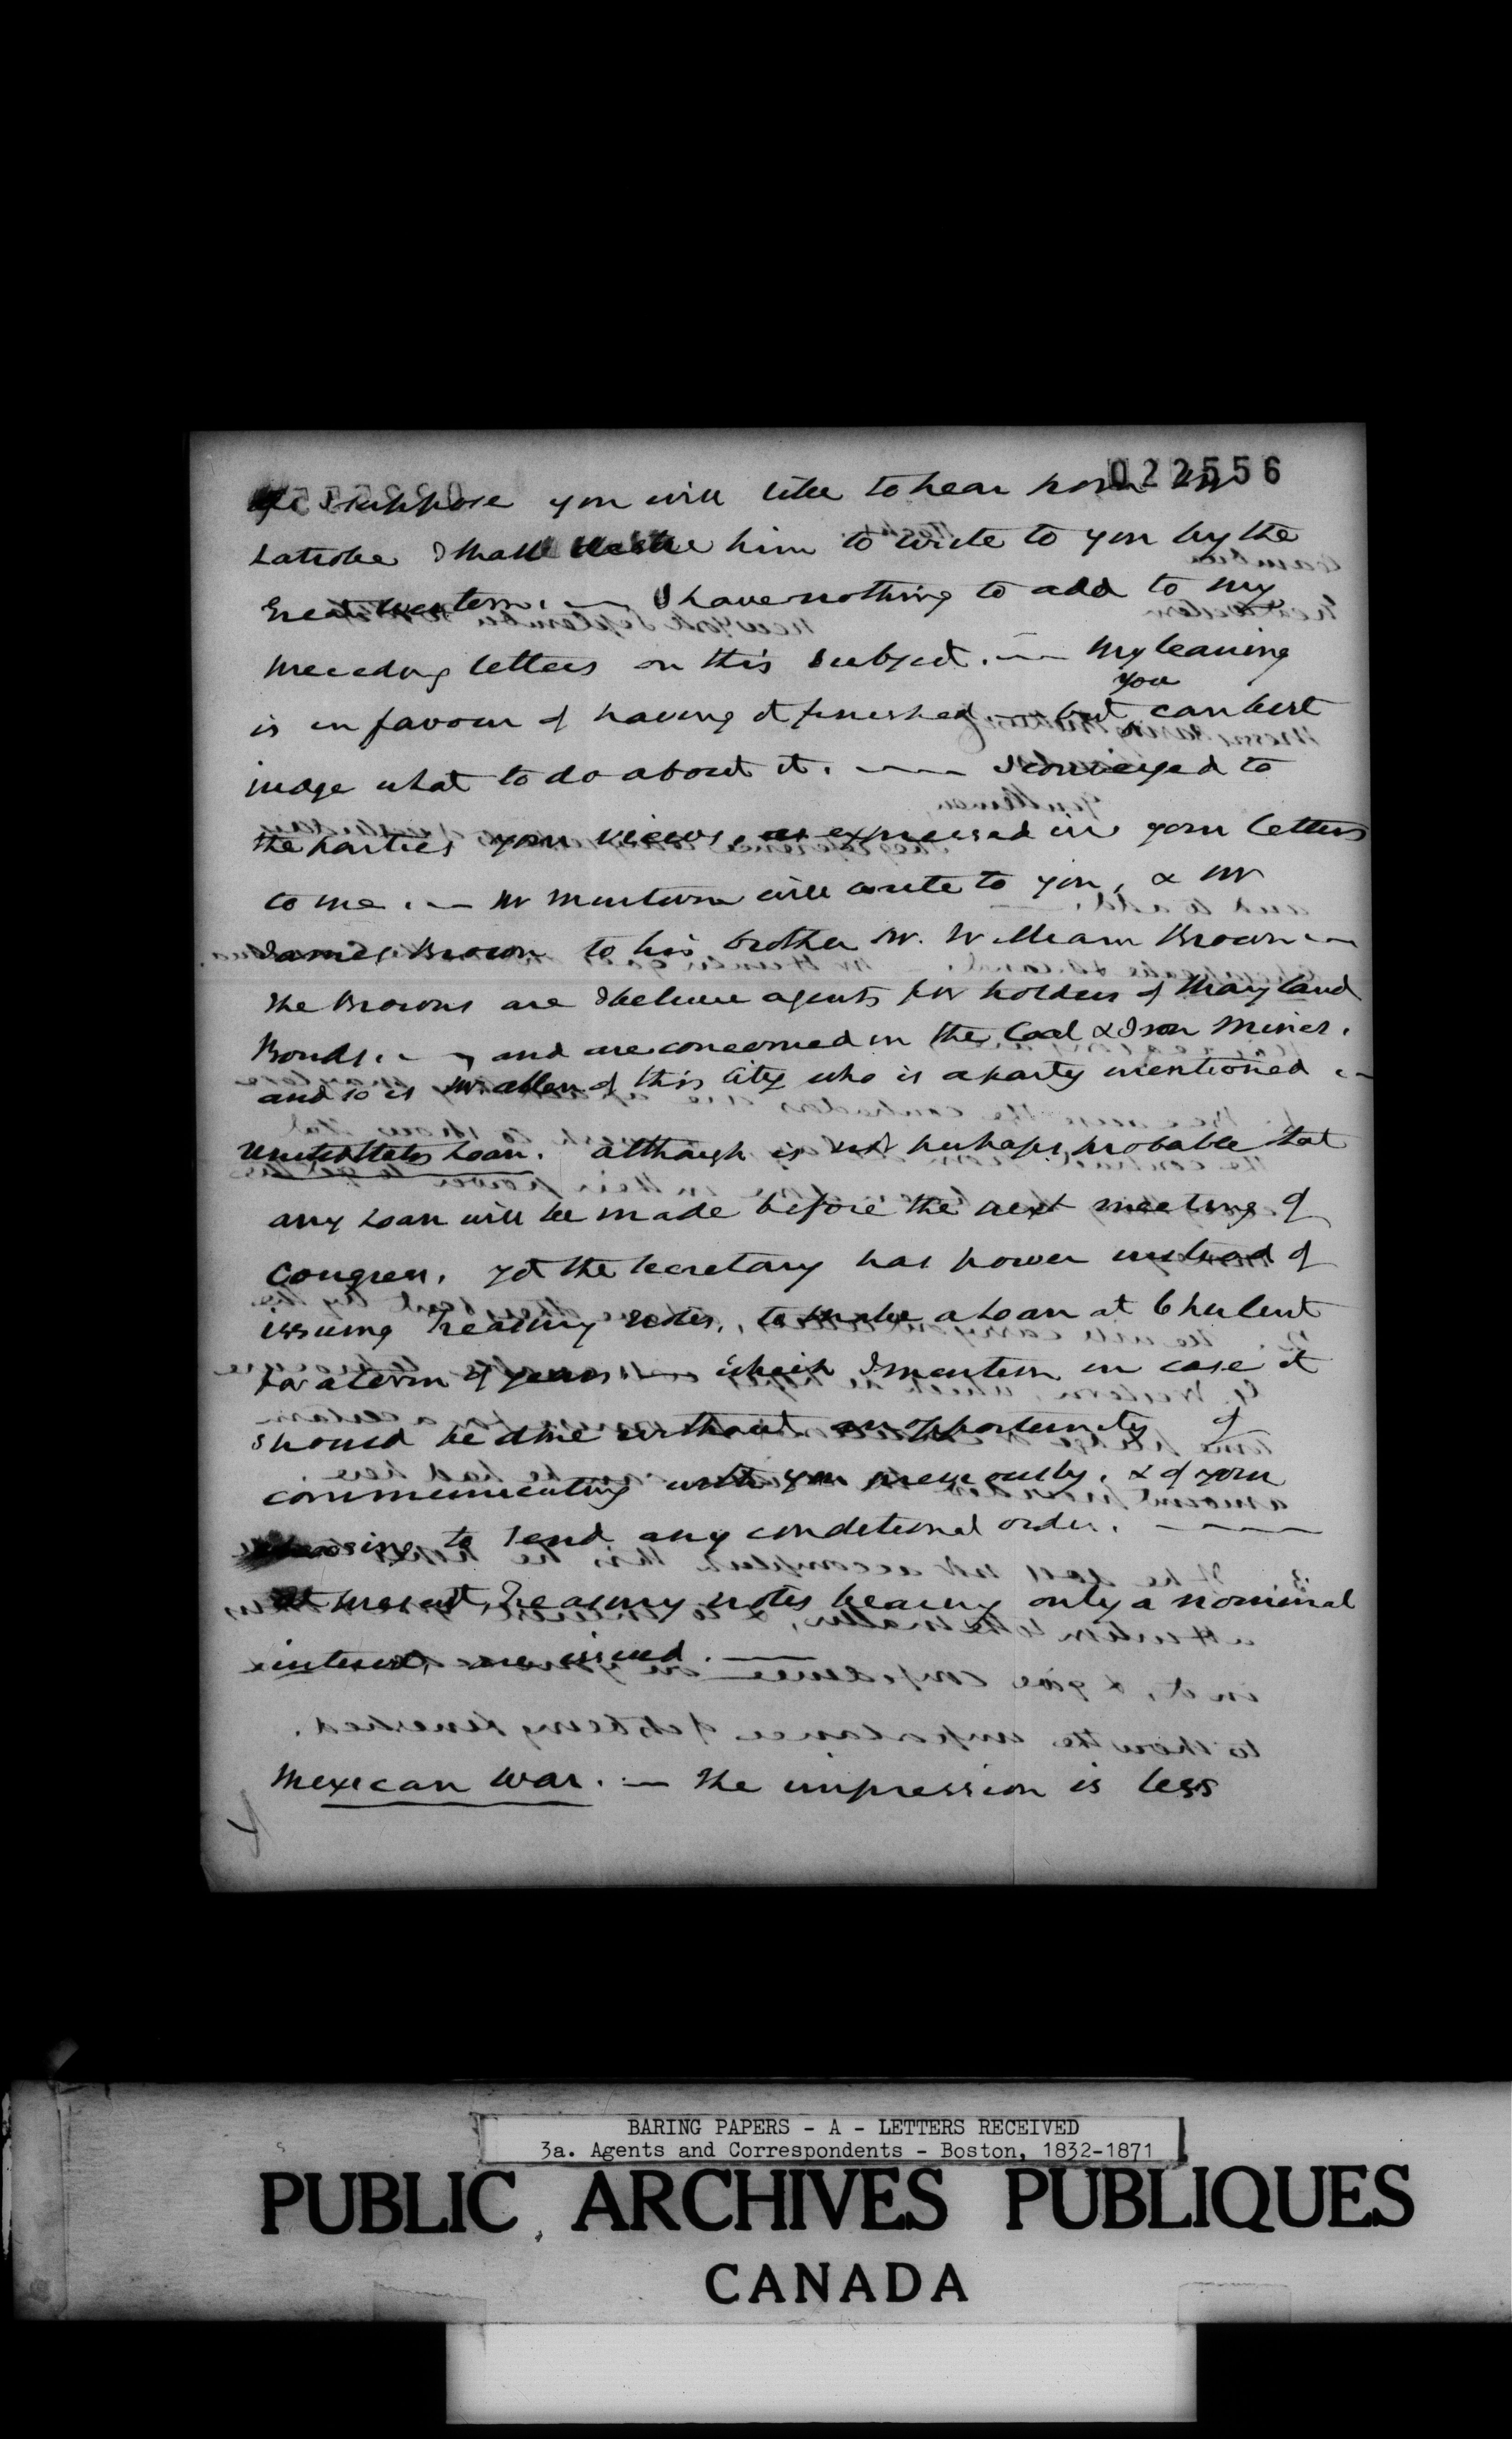 022556
I suppose you will like to hear from Mr
Latrobe I shall desire him to write to you by the
Great Western. — I have nothing to add to my
preceding letters on this subject. — My leaning
is in favour of having it finished — but you can best
judge what to do about it. — I conveyed to
the parties your views, as expressed in your letters
to me. — Mr Minturn will write to you, & Mr
James Brown to his brother Mr. William Brown —
The Browns are I believe agents for holders of Maryland
Bonds. — and are concerned in the Coal & Iron Mines.
and so is Mr Allen of this City who is a party mentioned —
United States Loan. although is not perhaps probable that
any Loan will be made before the next meeting of
Congress. yet the Secretary has power instead of
issuing Treasury Notes, to make a Loan at 6 per Cent
for a term of years — which I mention in case it
should be done without an opportunity of
communicating with you previously. & of your
to send any conditional order. —
At present, Treasury notes bearing only a nominal
interest, are issued. —
Mexican War. — The impression is less
BARING PAPERS - A - LETTERS RECEIVED
3a. Agents and Correspondents - Boston, 1832-1871
PUBLIC ARCHIVES PUBLIQUES
CANADA